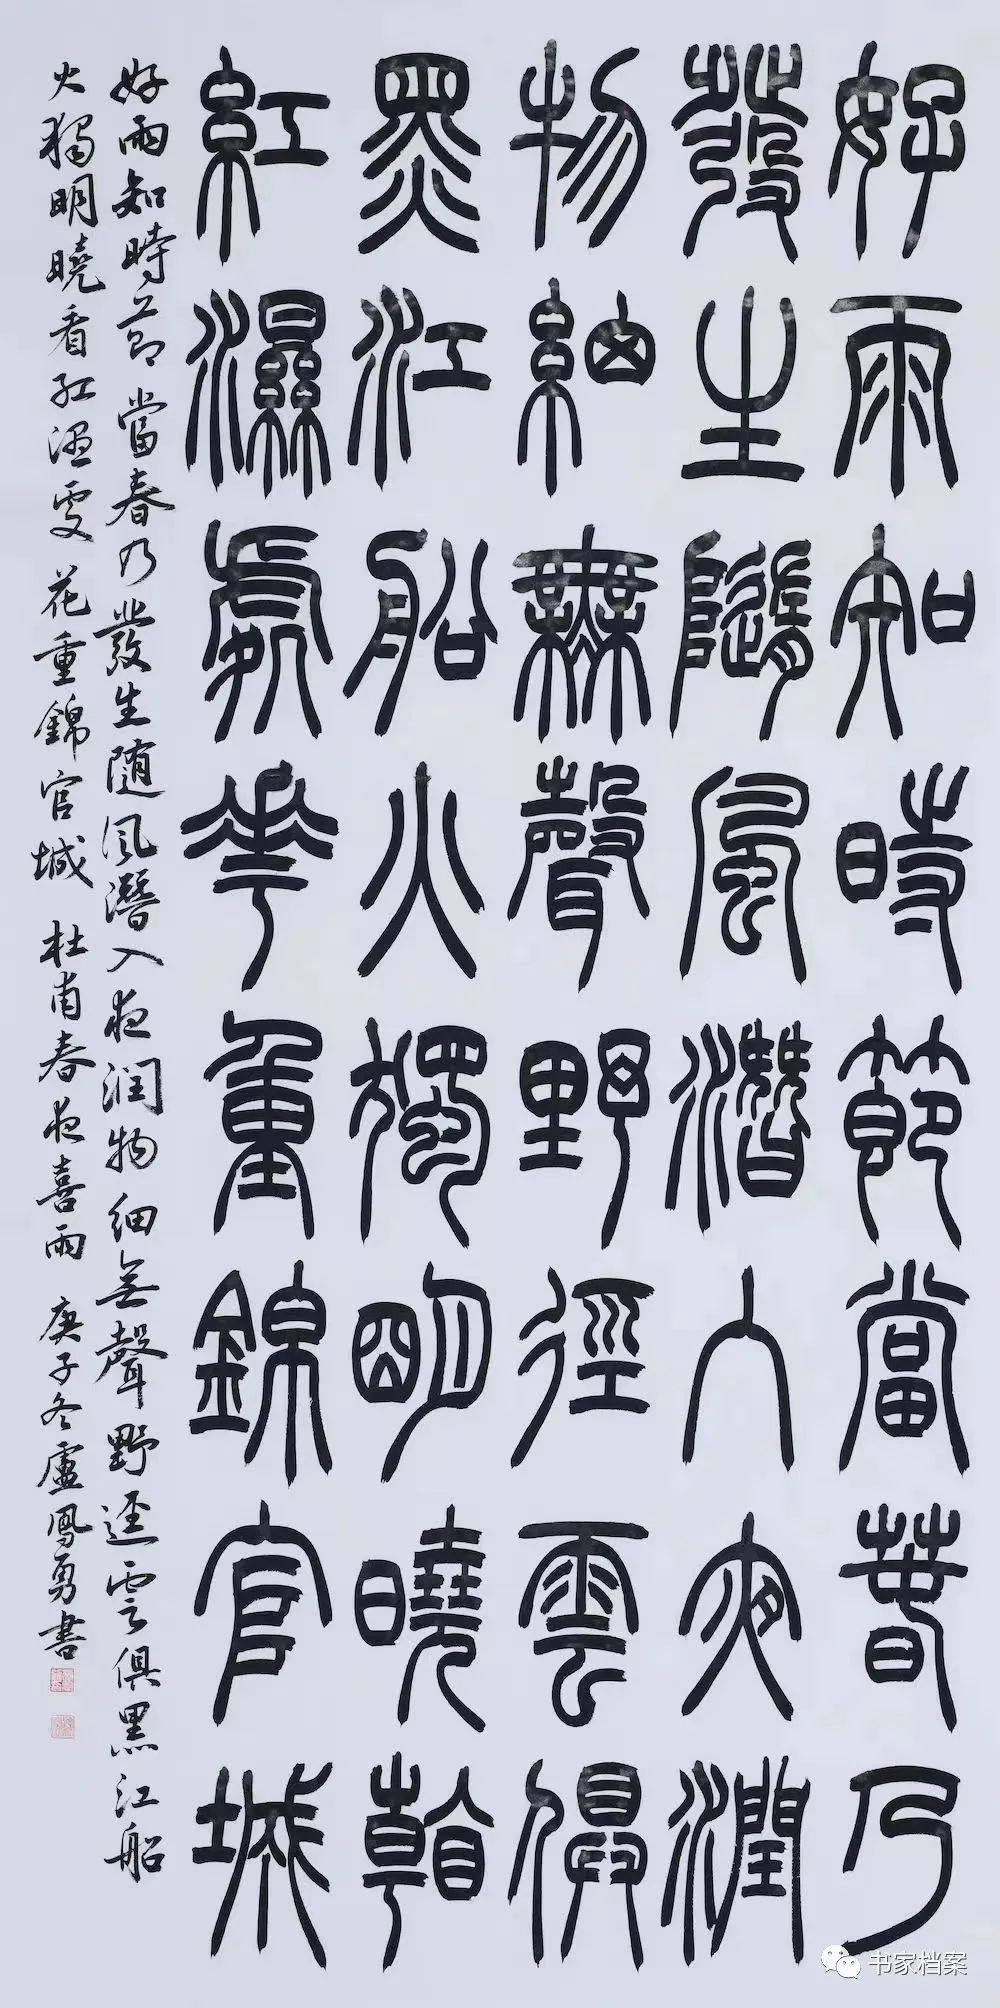 好雨知時節當春乃
發生隨風潛入夜潤
物細無聲野徑雲俱
黑江船火獨明曉看
紅濕處花重錦官城
好雨知時節當春乃發生隨風潛入夜潤物細無聲野逕雲俱黑江船
火獨明曉看紅濕處花重錦官城 杜甫春夜喜雨 庚子冬盧鳳勇書
书家档案